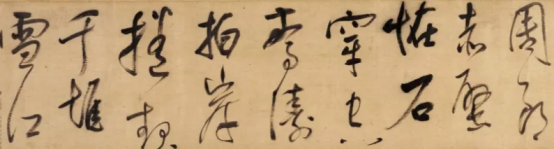 周郎
赤壁
恠石
穿空
驚濤
拍岸
捲起
千堆
雪江